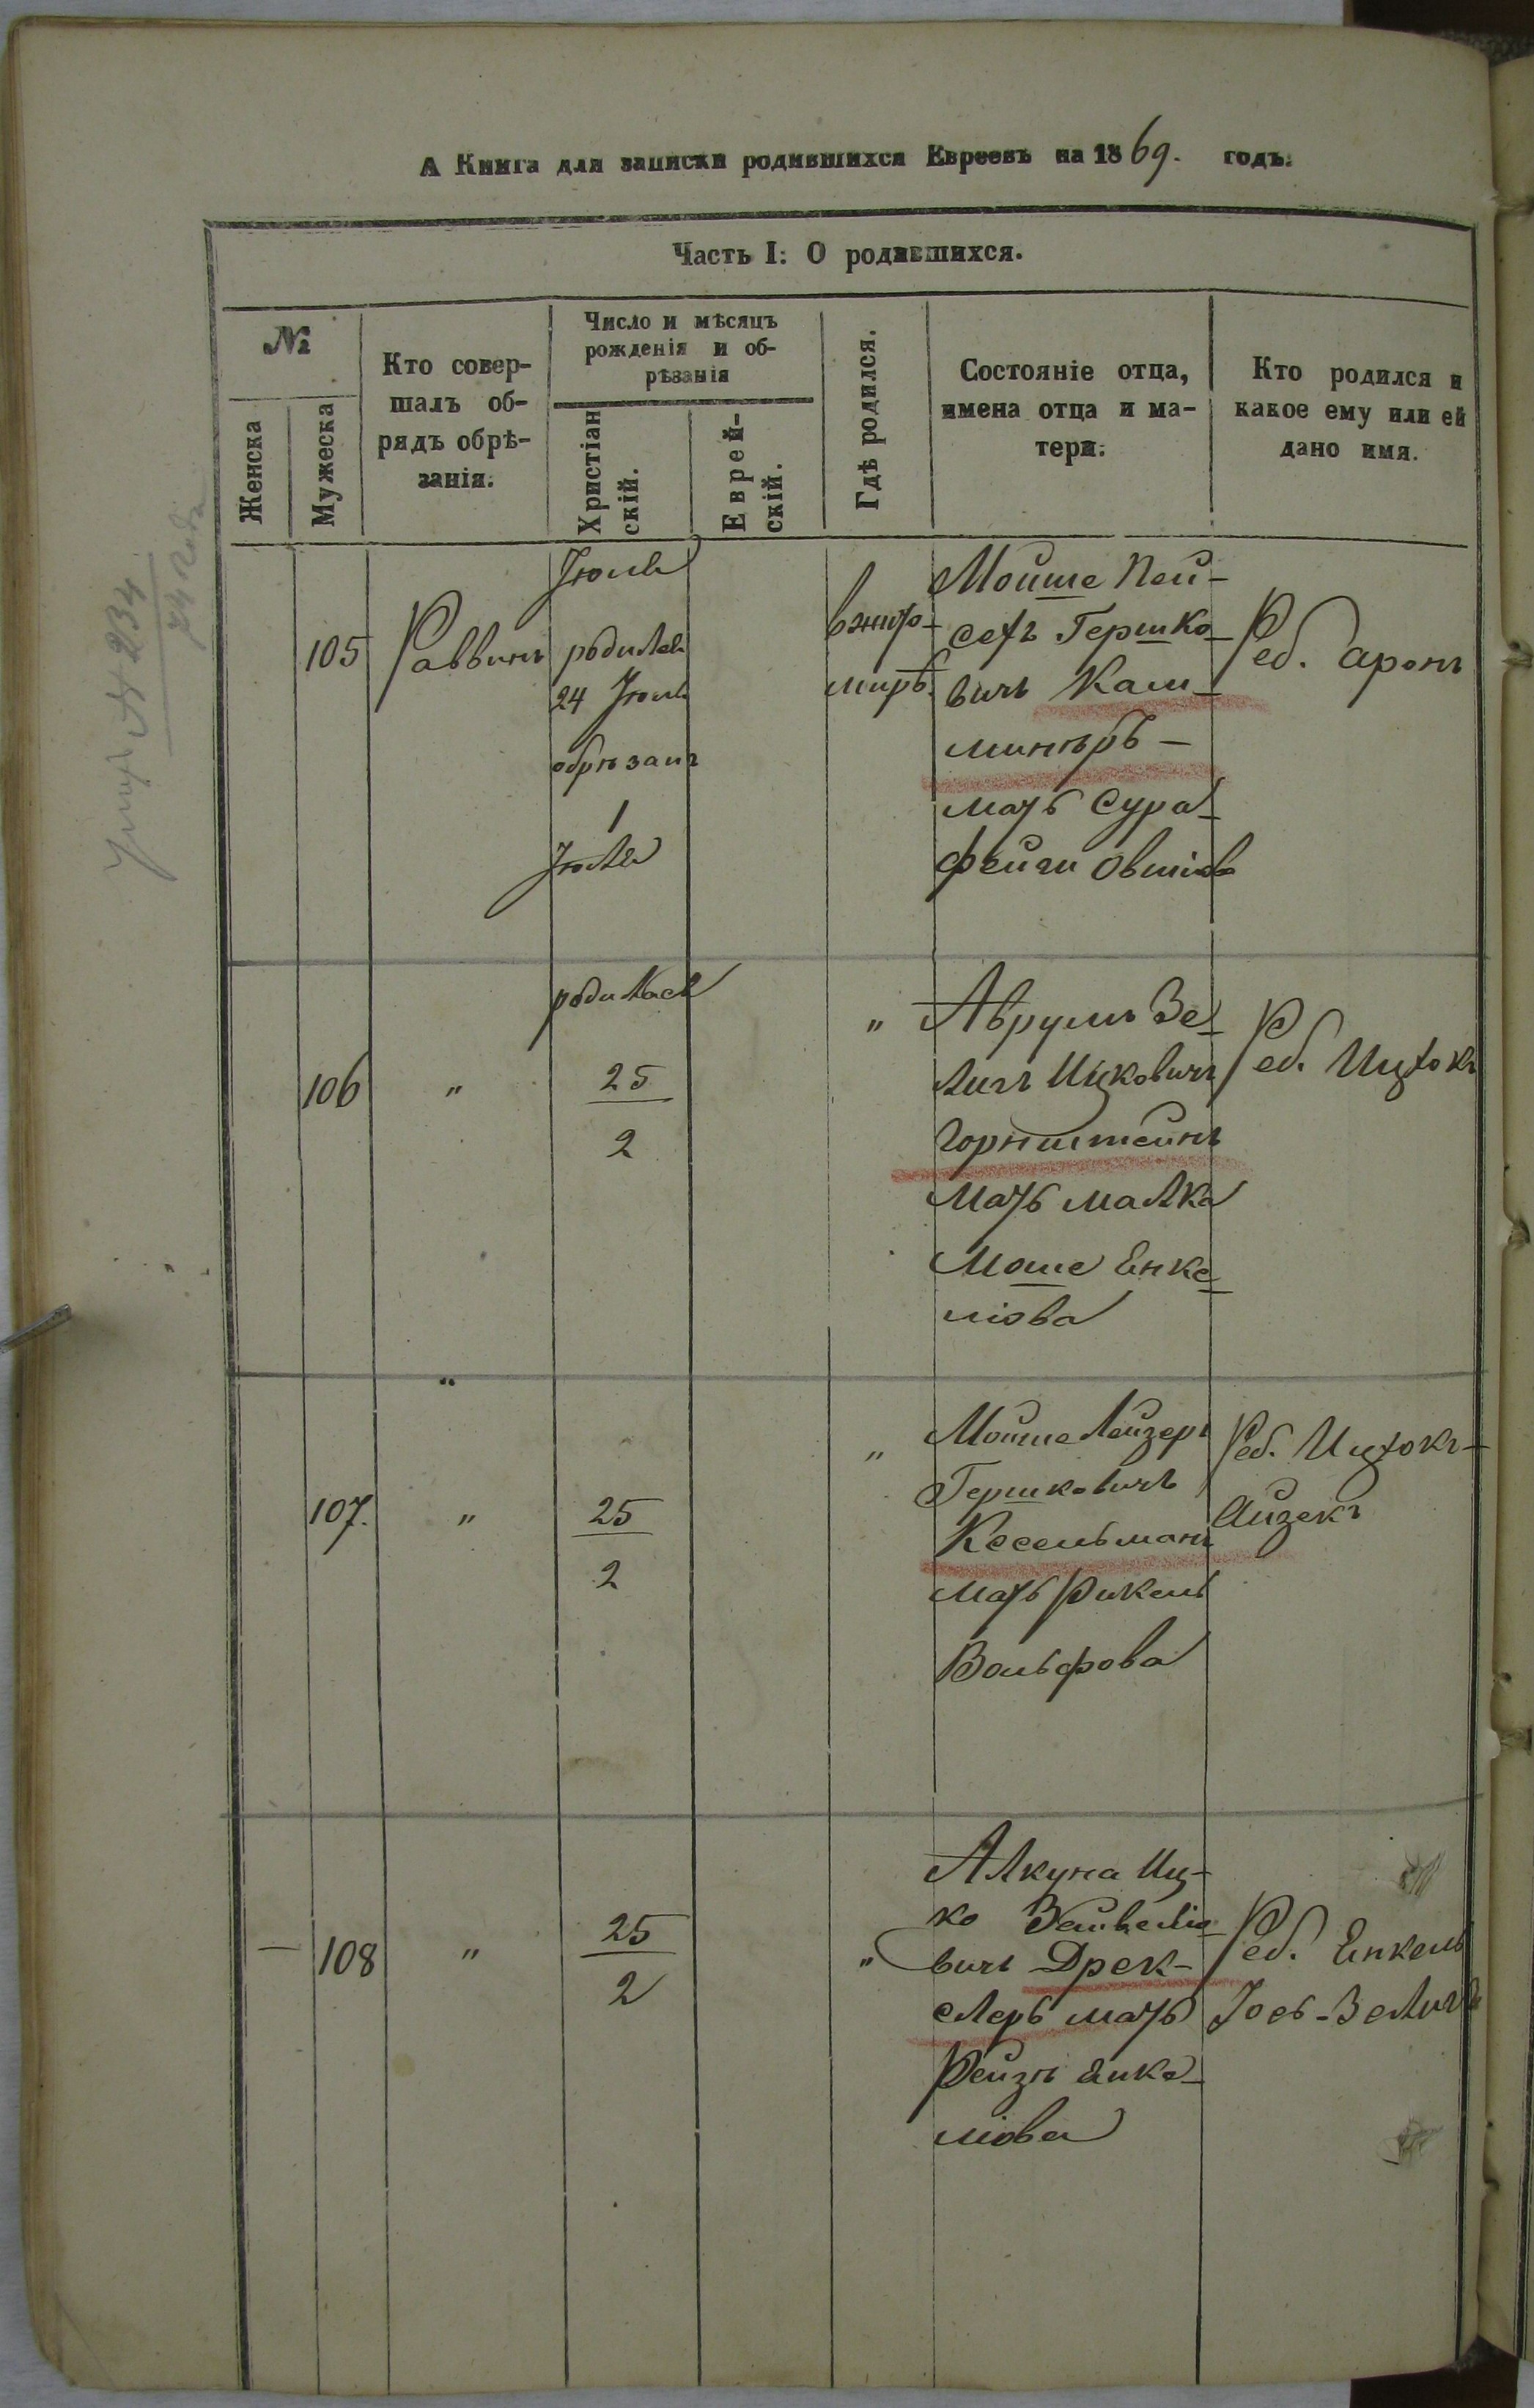 А Книга для записки родившихся Евреевъ на 1869. годъ.
Часть I: О родившихся.
№
Женска
Мужеска
Кто совер-
шалъ об-
рядъ обрѣ-
занія.
Число и мѣсяцъ
рожденія и об-
рѣзанія
Христіан
скій.
Еврей-
скій.
Гдѣ родился.
Состояніе отца,
имена отца и ма-
тери.
Кто родился и
какое ему или ей
дано имя.
№ 234
105
Раввинъ
Іюнь
родился
24 Іюнь
обрѣзанъ
1
Іюля
вжито-
мирѣ.
Мойше Пей-
сехъ Гершко-
вичъ Кам-
минѣръ -
мать Сура-
Фейги Овшіова
Реб. Аронъ
106
"
родился
25
2
"
Аврумъ Зе-
лигъ Ицковичъ
Горнштейнъ
мать малка
Моше Енке-
ліова
Реб. Ицхокъ
107.
"
25
2
"
Мойше Лейзеръ
Гершковичъ
Кесельманъ
мать Рикель
Вольфова
Реб. Ицхокъ-
Айзекъ
108
"
25
2
"
Алкуна Иц-
ко Зейвеліо-
вичъ Дрек-
слеръ мать
Рейзѣ Енке-
ліова
Реб. Енкель
Іось-Зелигъ